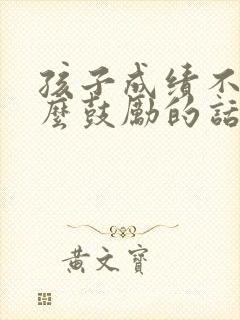 孩子成绩不
麼鼓励的話
黄文寶